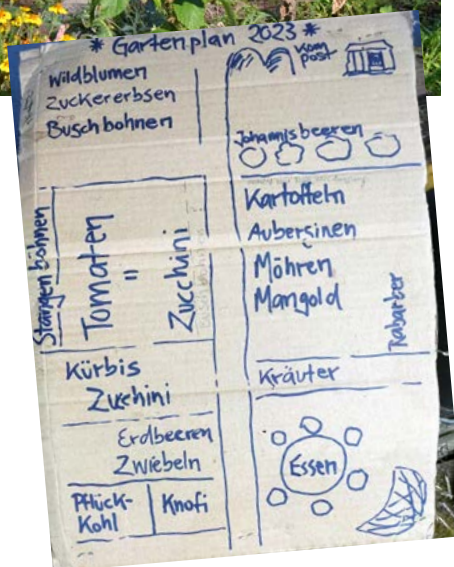 * Gartenplan 2023 *
Wildblumen
Zuckererbsen
Buschbohnen
Kom
post
Johannisbeeren
Stangenbohnen
Tomaten
"
Zucchini
Kartoffeln
Auberginen
Möhren
Mangold
Rabarber
Kürbis
Zucchini
Kräuter
Erdbeeren
Zwiebeln
Pflück-
Kohl
Knofi
Essen